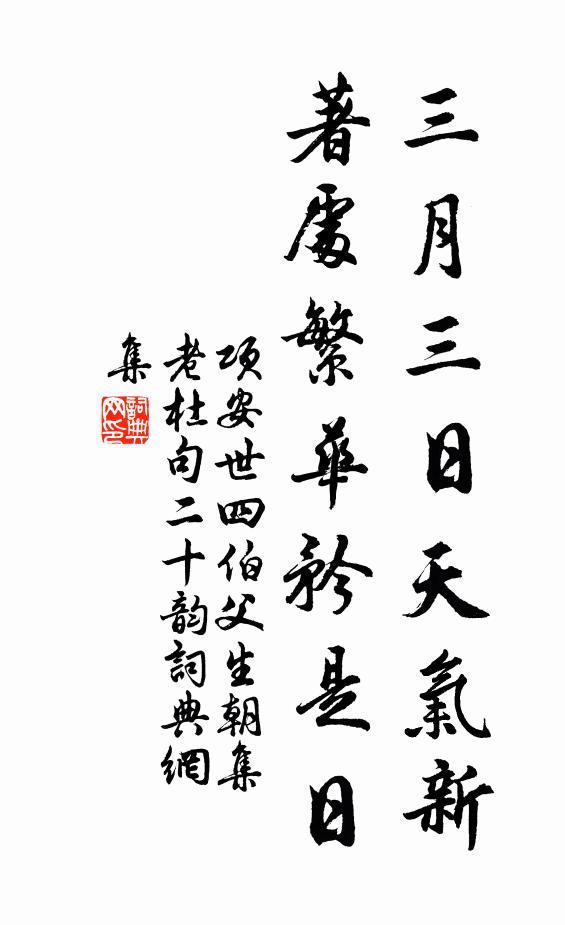 三月三日天氣新
著處繁華矜是日
項安世四伯父生朝集
老杜句二十韵詞典網
集
詞典
网印